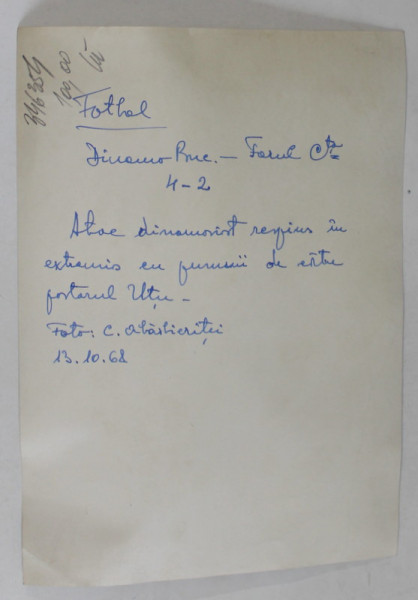 396354
100,00
Lei
Fotbal
Dinamo Buc. – Farul Cța
4-2
Atac dinamovist respins în
extremis cu pumnii de către
portarul Uțu –
Foto: C.
13.10.68